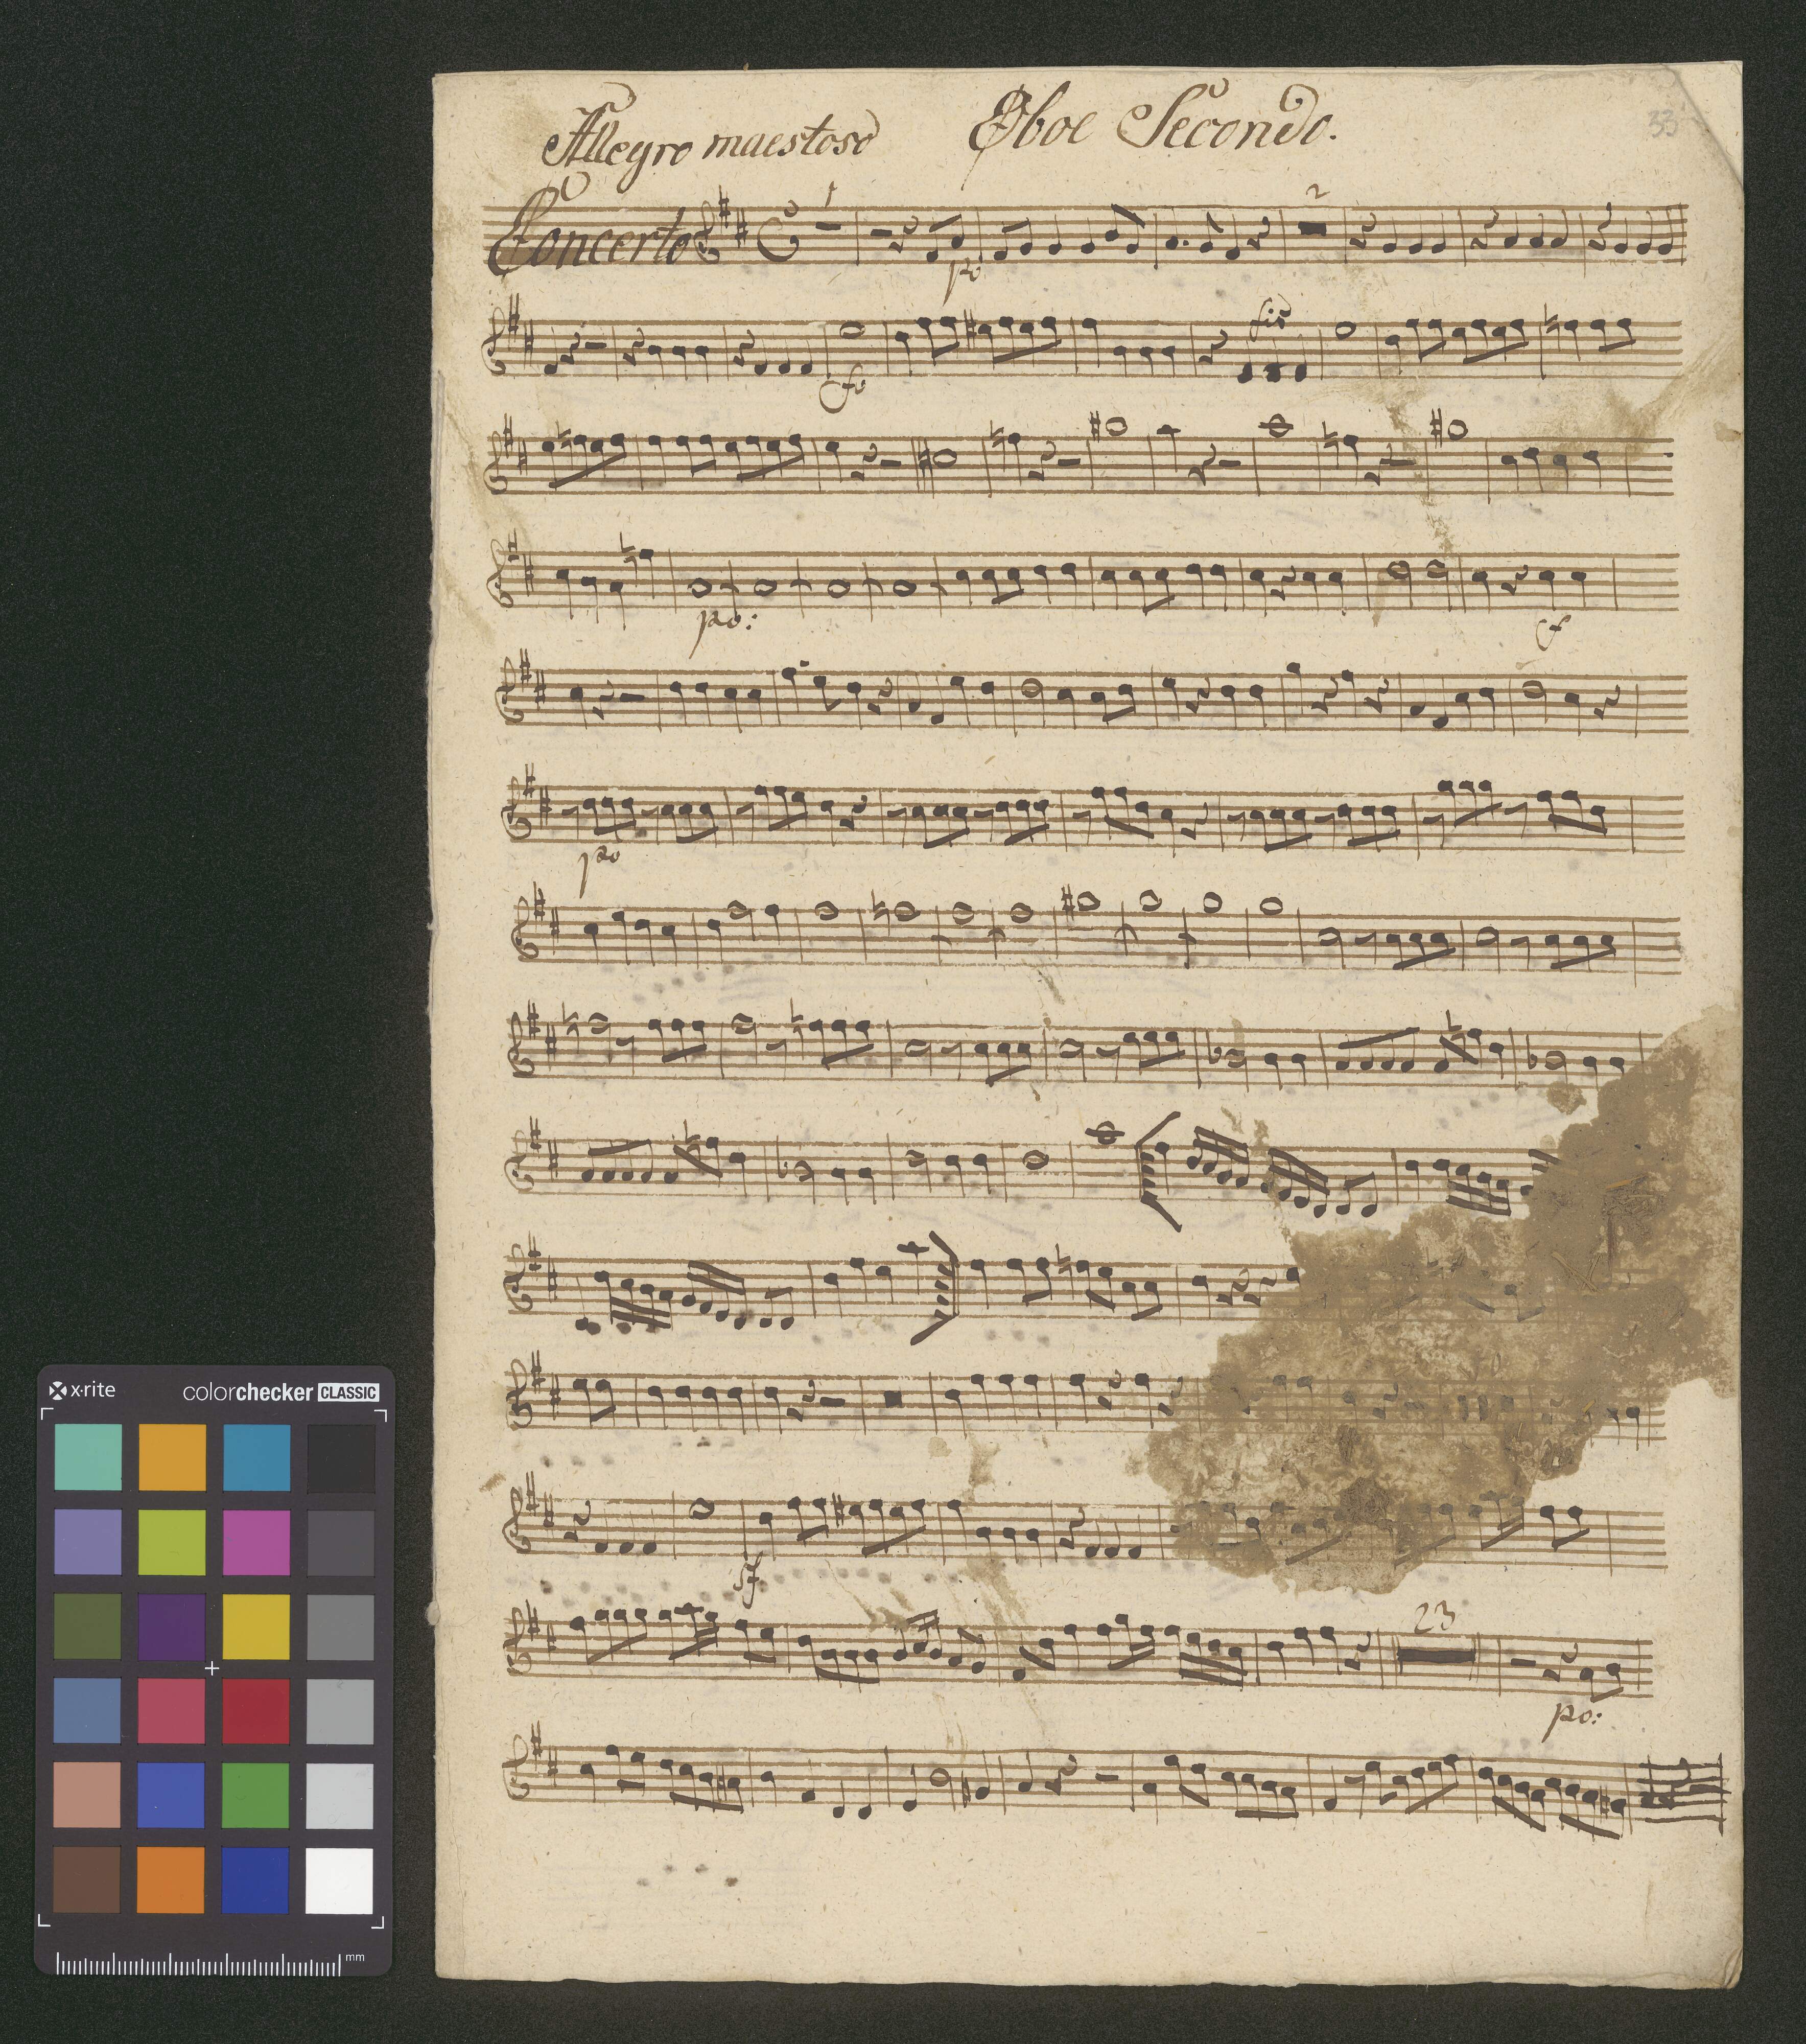 Allegro maestoso Oboe Secondo.
33
Concerto
1
2
po
fo
fis
po:
f
po
sf
23
po:
x·rite colorchecker CLASSIC
mm